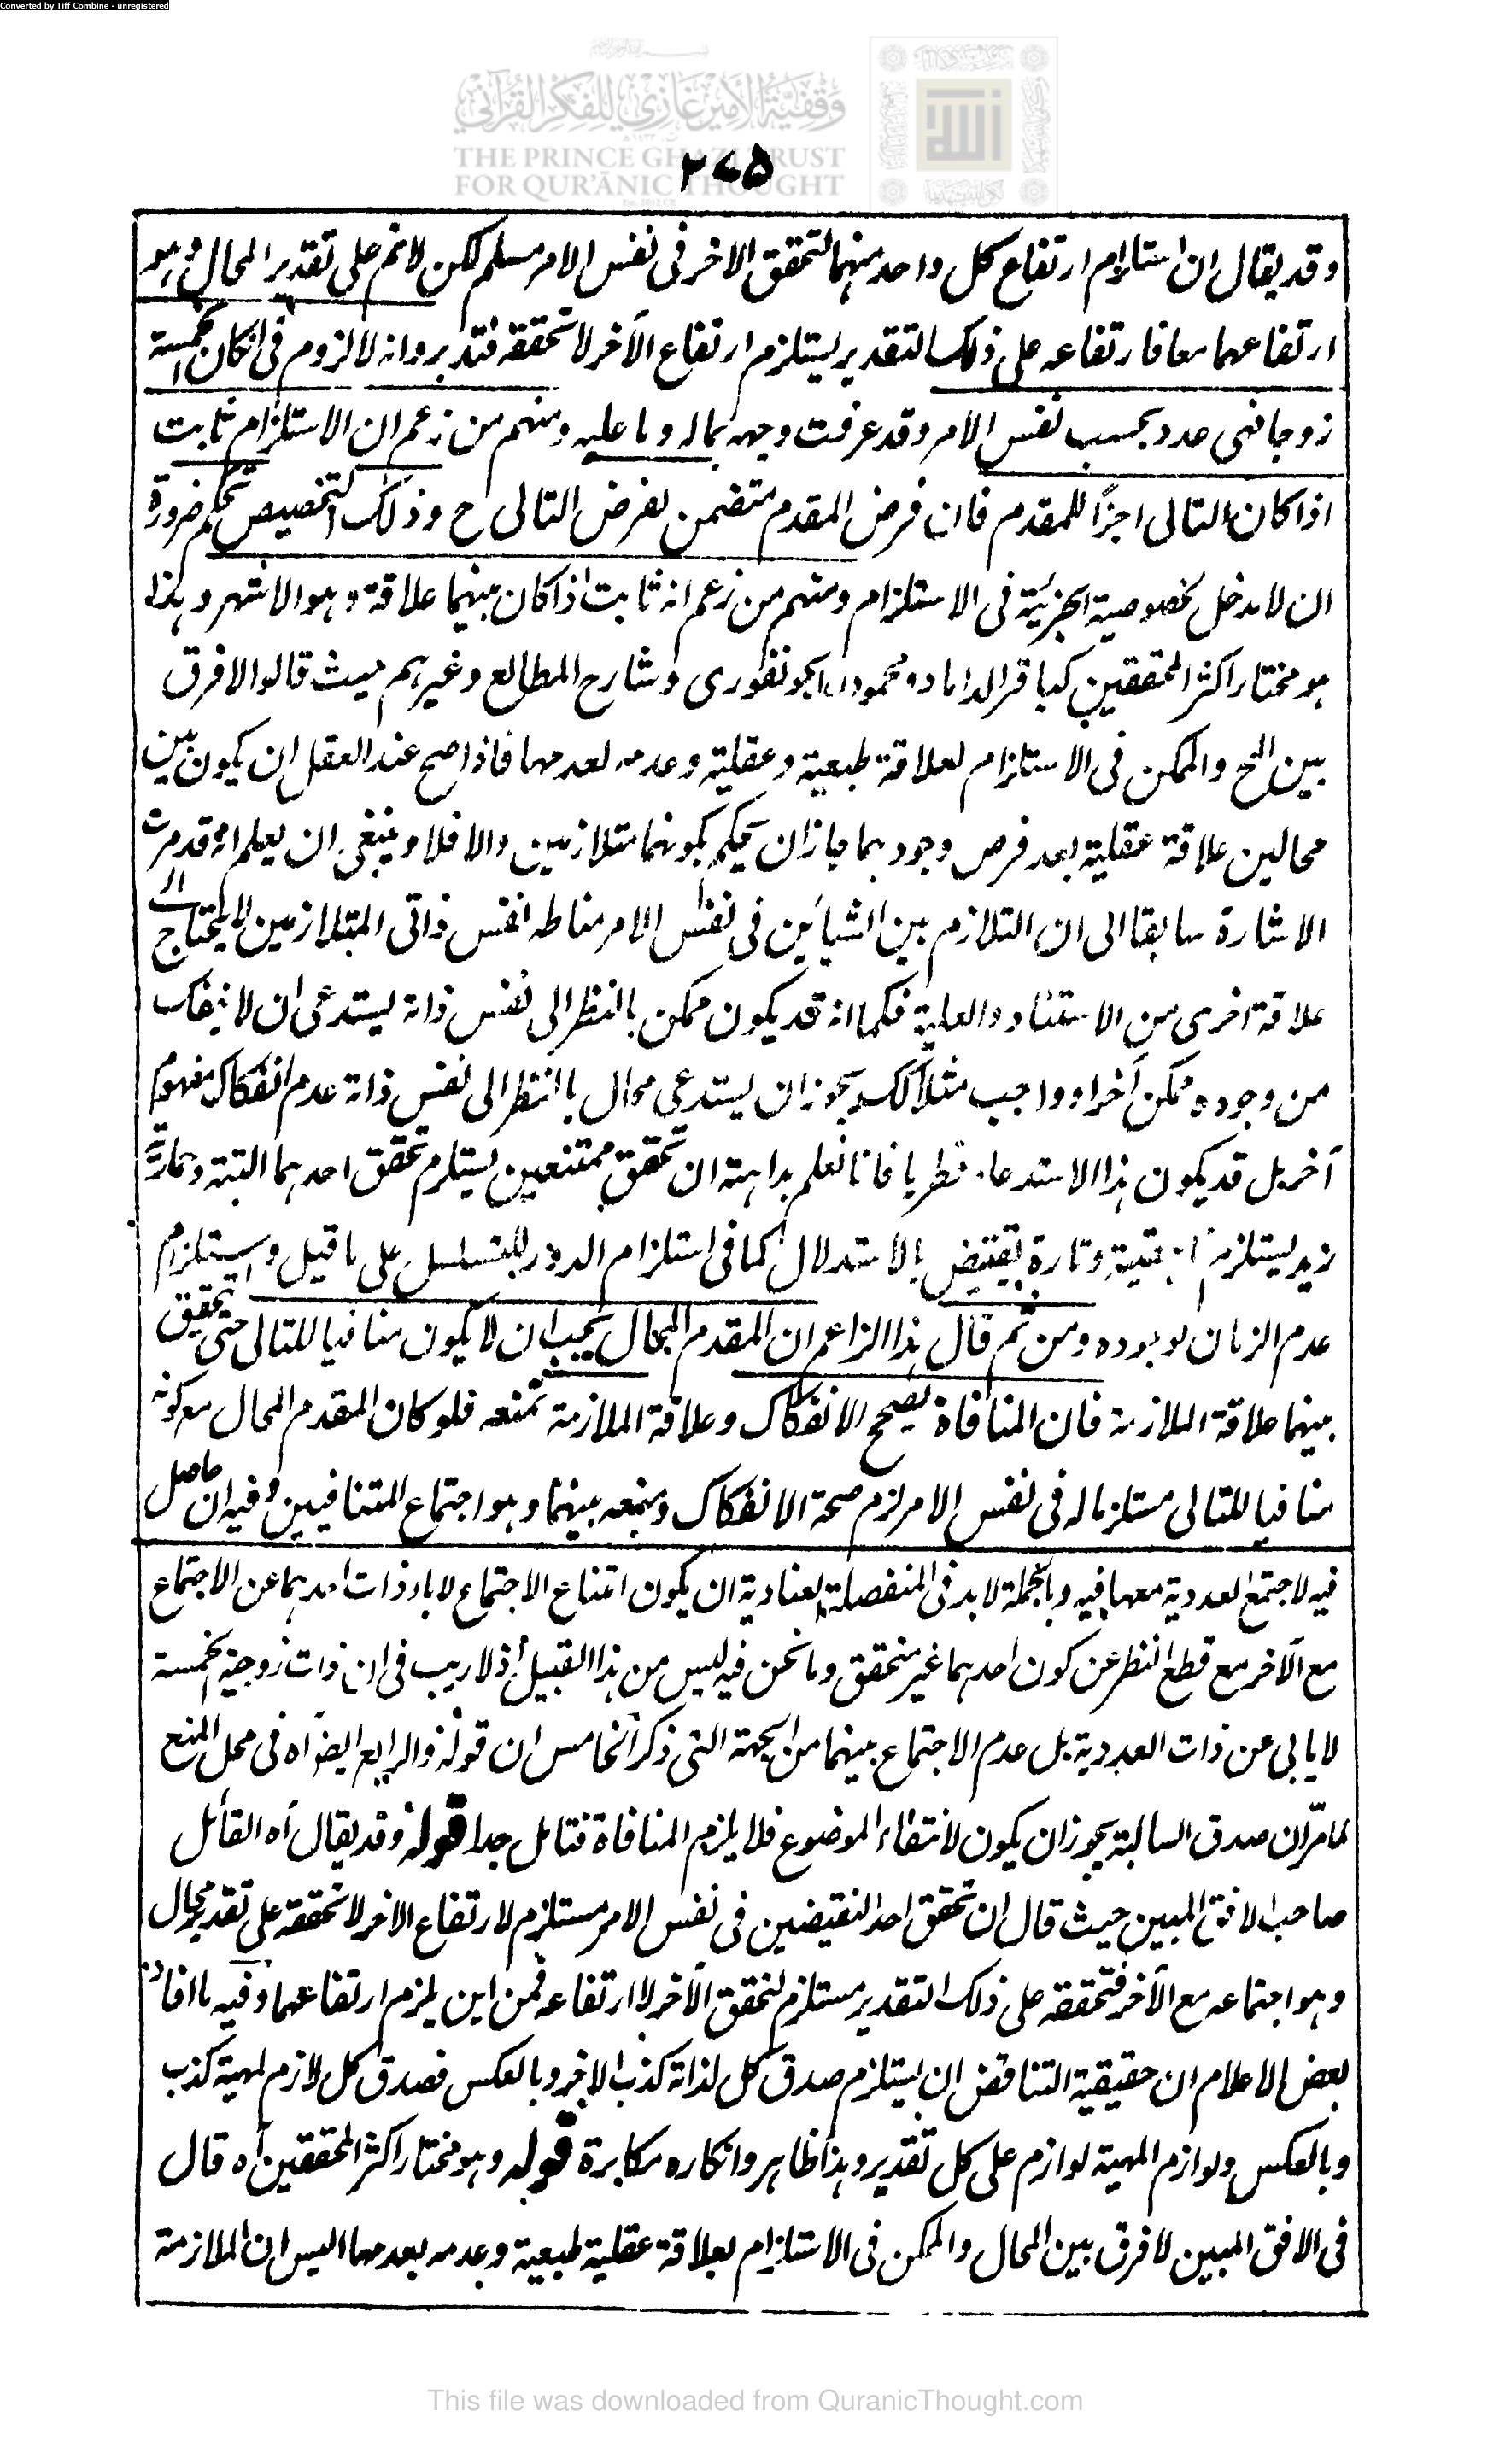 Converted by Tiff Combine - unregistered
وقفية الأمير غازي للفكر القرآني
THE PRINCE GHAZI TRUST
FOR QUR'ĀNIC THOUGHT
٢٧٥
وقد يقال ان استلزام ارتفاع كل واحد منهما لتحقق الاخر فى نفس الامر مسلم لكن لا نم على تقدير المحال وهو
ارتفاعهما معا فارتفاعه على ذلك التقدير يستلزم ارتفاع الآخر لا تحققه فتدبر وانه لا لزوم فى ان كان الخمسة
زوجا فهى عدد بحسب نفس الامر وقد عرفت وجهه بماله وما عليه ومنهم من زعم ان الاستلزام ثابت
اذا كان التالى جزأ للمقدم فان فرض المقدم متضمن لفرض التالى ح وذلك التخصيص تحكم ضرورة
ان لا مدخل لخصوصية الجزئية فى الاستلزام ومنهم من زعم انه ثابت اذا كان بينهما علاقة وهو الاشهر وهذا
هو مختار اكثر المحققين كباقر الداماد ومحمود الجونفورى وشارح المطالع وغيرهم حيث قالوا لا فرق
بين المح والممكن فى الاستلزام لعلاقة طبعية وعقلية وعدمه لعدمها فاذا صح عند العقل ان يكون بين
محالين علاقة عقلية بعد فرض وجودهما جاز ان يحكم بكونهما متلازمين والا فلا وينبغى ان يعلم انه قد مرت
الاشارة سابقا الى ان التلازم بين الشيأين فى نفس الامر مناطه نفس ذاتى المتلازمين لا يحتاج الى
علاقة اخرى من الاستناد والعلية فكما انه قد يكون ممكن بالنظر الى نفس ذاته يستدعى ان لا ينفك
من وجوده ممكن آخر او واجب مثلا كك يجوز ان يستدعى محال بالنظر الى نفس ذاته عدم انفكاك مفهوم
آخر بل قد يكون هذا الاستدعاء فطريا فانا نعلم بداهة ان تحقق ممتنعين يستلزم تحقق احدهما البتة وحمارية
زيد يستلزم ناهقيته وتارة يقتنص بالاستدلال كما فى استلزام الدور للتسلسل على ما قيل واستلزام
عدم الزمان لوجوده ومن ثم قال هذا الزاعم ان المقدم المحال يجب ان لا يكون منافيا للتالى حتى يتحقق
بينهما علاقة الملازمة فان المنافاة تصحح الانفكاك وعلاقة الملازمة تمنعه فلو كان المقدم المحال مع كونه
منافيا للتالى مستلزما له فى نفس الامر لزم صحة الانفكاك ومنعه بينهما وهو اجتماع المتنافيين وفيه ان حاصل
فيه لاجتمع العددية معها فيه وبالجملة لا بد فى المنفصلة العنادية ان يكون امتناع الاجتماع لاباء ذات احدهما عن الاجتماع
مع الآخر مع قطع النظر عن كون احدهما غير متحقق وما نحن فيه ليس من هذا القبيل اذ لا ريب فى ان ذات زوجية الخمسة
لا يابى عن ذات العددية بل عدم الاجتماع بينهما من الجهة التى ذكر الخامس ان قوله والرابع ايضا اه فى محل المنع
لما مر ان صدق السالبة يجوز ان يكون لانتفاء الموضوع فلا يلزم المنافاة فتامل جدا قوله وقد يقال آه القائل
صاحب الافق المبين حيث قال ان تحقق احد النقيضين فى نفس الامر مستلزم لارتفاع الاخر لا تحققه على تقدير محال
وهو اجتماعه مع الآخر فتحققه على ذلك التقدير مستلزم لتحقق الآخر لا ارتفاعه فمن اين يلزم ارتفاعهما وفيه ما افاد
بعض الاعلام ان حقيقة التناقض ان يستلزم صدق كل لذاته كذب الاخر وبالعكس فصدق كل لازم لمهية كذب
وبالعكس ولوازم المهية لوازم على كل تقدير وهذا ظاهر وانكاره مكابرة قوله وهو مختار اكثر المحققين آه قال
فى الافق المبين لا فرق بين المحال والممكن فى الاستلزام بعلاقة عقلية طبعية وعدمه بعدمها اليس ان الملازمة
This file was downloaded from QuranicThought.com